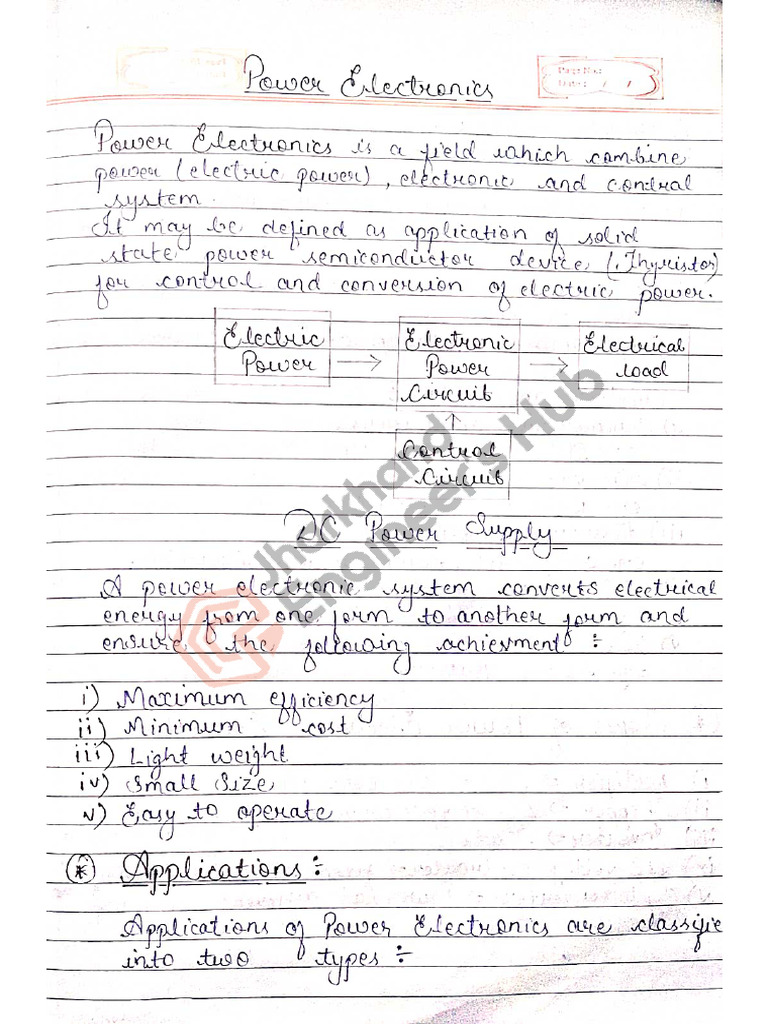 Power Electronics
Page No.:
Date: / /
Power Electronics is a field which combine
power (electric power), electronic and control
system.
It may be defined as application of solid
state power semiconductor device (Thyristor)
for control and conversion of electric power.
Electric
Power
Electronic
Power
Circuit
Electrical
load
Control
Circuit
DC Power Supply
A power electronic system converts electrical
energy from one form to another form and
ensure the following achievment ÷
i) Maximum efficiency
ii) Minimum cost
iii) Light weight
iv) Small Size
v) Easy to operate
* Applications ÷
Applications of Power Electronics are classifie
into two types ÷
Jharkhand
Engineer's Hub